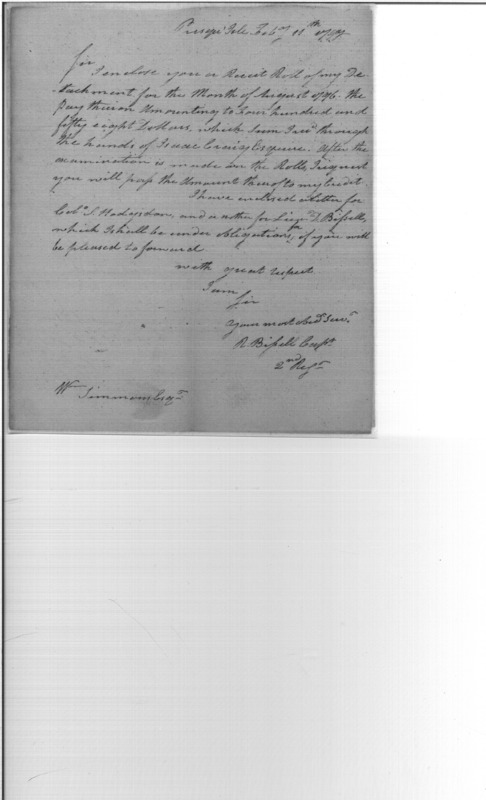 Presqu Isle Feby 11th 1797
Sir
I enclose you a Receit Roll of my De
tachment for the Month of August 1796. the
pay thereon Amounting to four hundred and
fifty eight Dollars, which sum I recd through
the hands of Isaac Craig Esquire. After the
examination is made on the Rolls, I request
you will pass the Amount thereof to my Credit
I have enclosed a letter for
Colo. S. Hodgsdon, and another for Lieut. D. Bissell,
which I shall be under obligations, if you will
be pleased to forward
with great respect
I am
Sir
Your most obdt Servt.
R. Bissell Capt.
2nd Regt.
Wm Simmons Esqr.